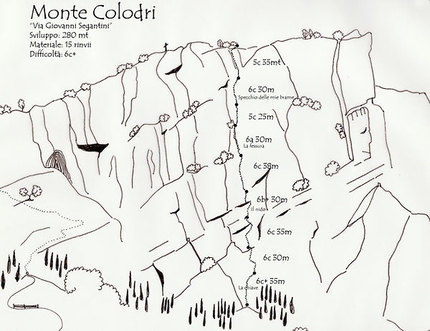 Monte Colodri
"Via Giovanni Segantini"
Sviluppo: 280 mt
Materiale: 15 rinvii
Difficoltà: 6c+
5c 35mt
6c 30m
Specchio delle mie brame
5c 25m
6a 30m
La fessura
6c 38m
6b+ 30m
Il nido
6c 35m
6c 30m
6c+ 35m
La chiave